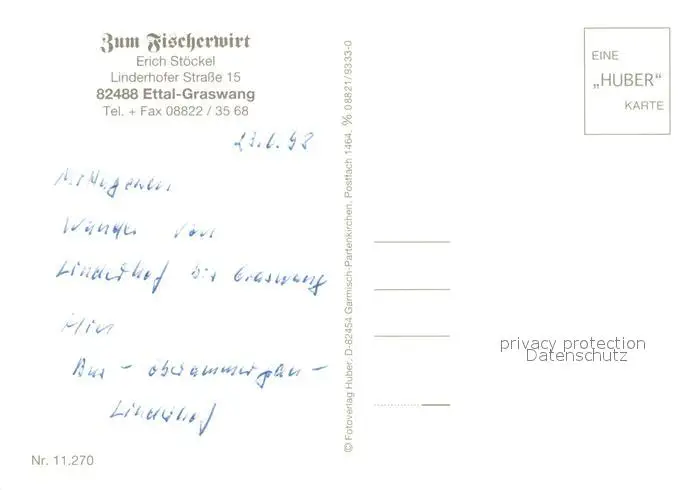 Zum Fischerwirt
Erich Stöckel
Linderhofer Straße 15
82488 Ettal-Graswang
Tel. + Fax 08822 / 35 68
Mittagessen
Wander von
Linderhof bis Graswang
Hin
Bus - Oberammergau -
Linderhof
Nr. 11.270
© Fotoverlag Huber, D-82454 Garmisch-Partenkirchen, Postfach 1464, ℅ 08821/9333-0
EINE
„HUBER"
KARTE
privacy protection
Datenschutz